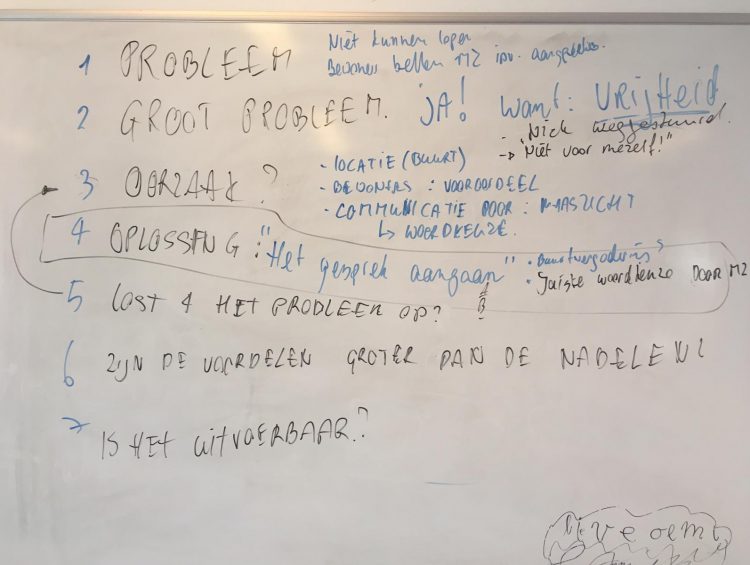 1 PROBLEEM
Niet kunnen lopen
Bewoners bellen MZ ipv. aangesproken.
2 GROOT PROBLEEM. JA! want: VRIJHEID
- "Nick weggestuurd.
-> "Niet voor mezelf!"
3 OORZAAK?
• LOCATIE (BUURT)
• BEWONERS : VOOROORDEEL
• COMMUNICATIE DOOR : MAASZICHT
↳ WOORDKEUZE.
4 OPLOSSING: "Het gesprek aangaan"
• Juiste woordkeuze DOOR MZ
5 LOST 4 HET PROBLEEM OP?
6 ZIJN DE VOORDELEN GROTER DAN DE NADELEN?
7 IS HET UITVOERBAAR?